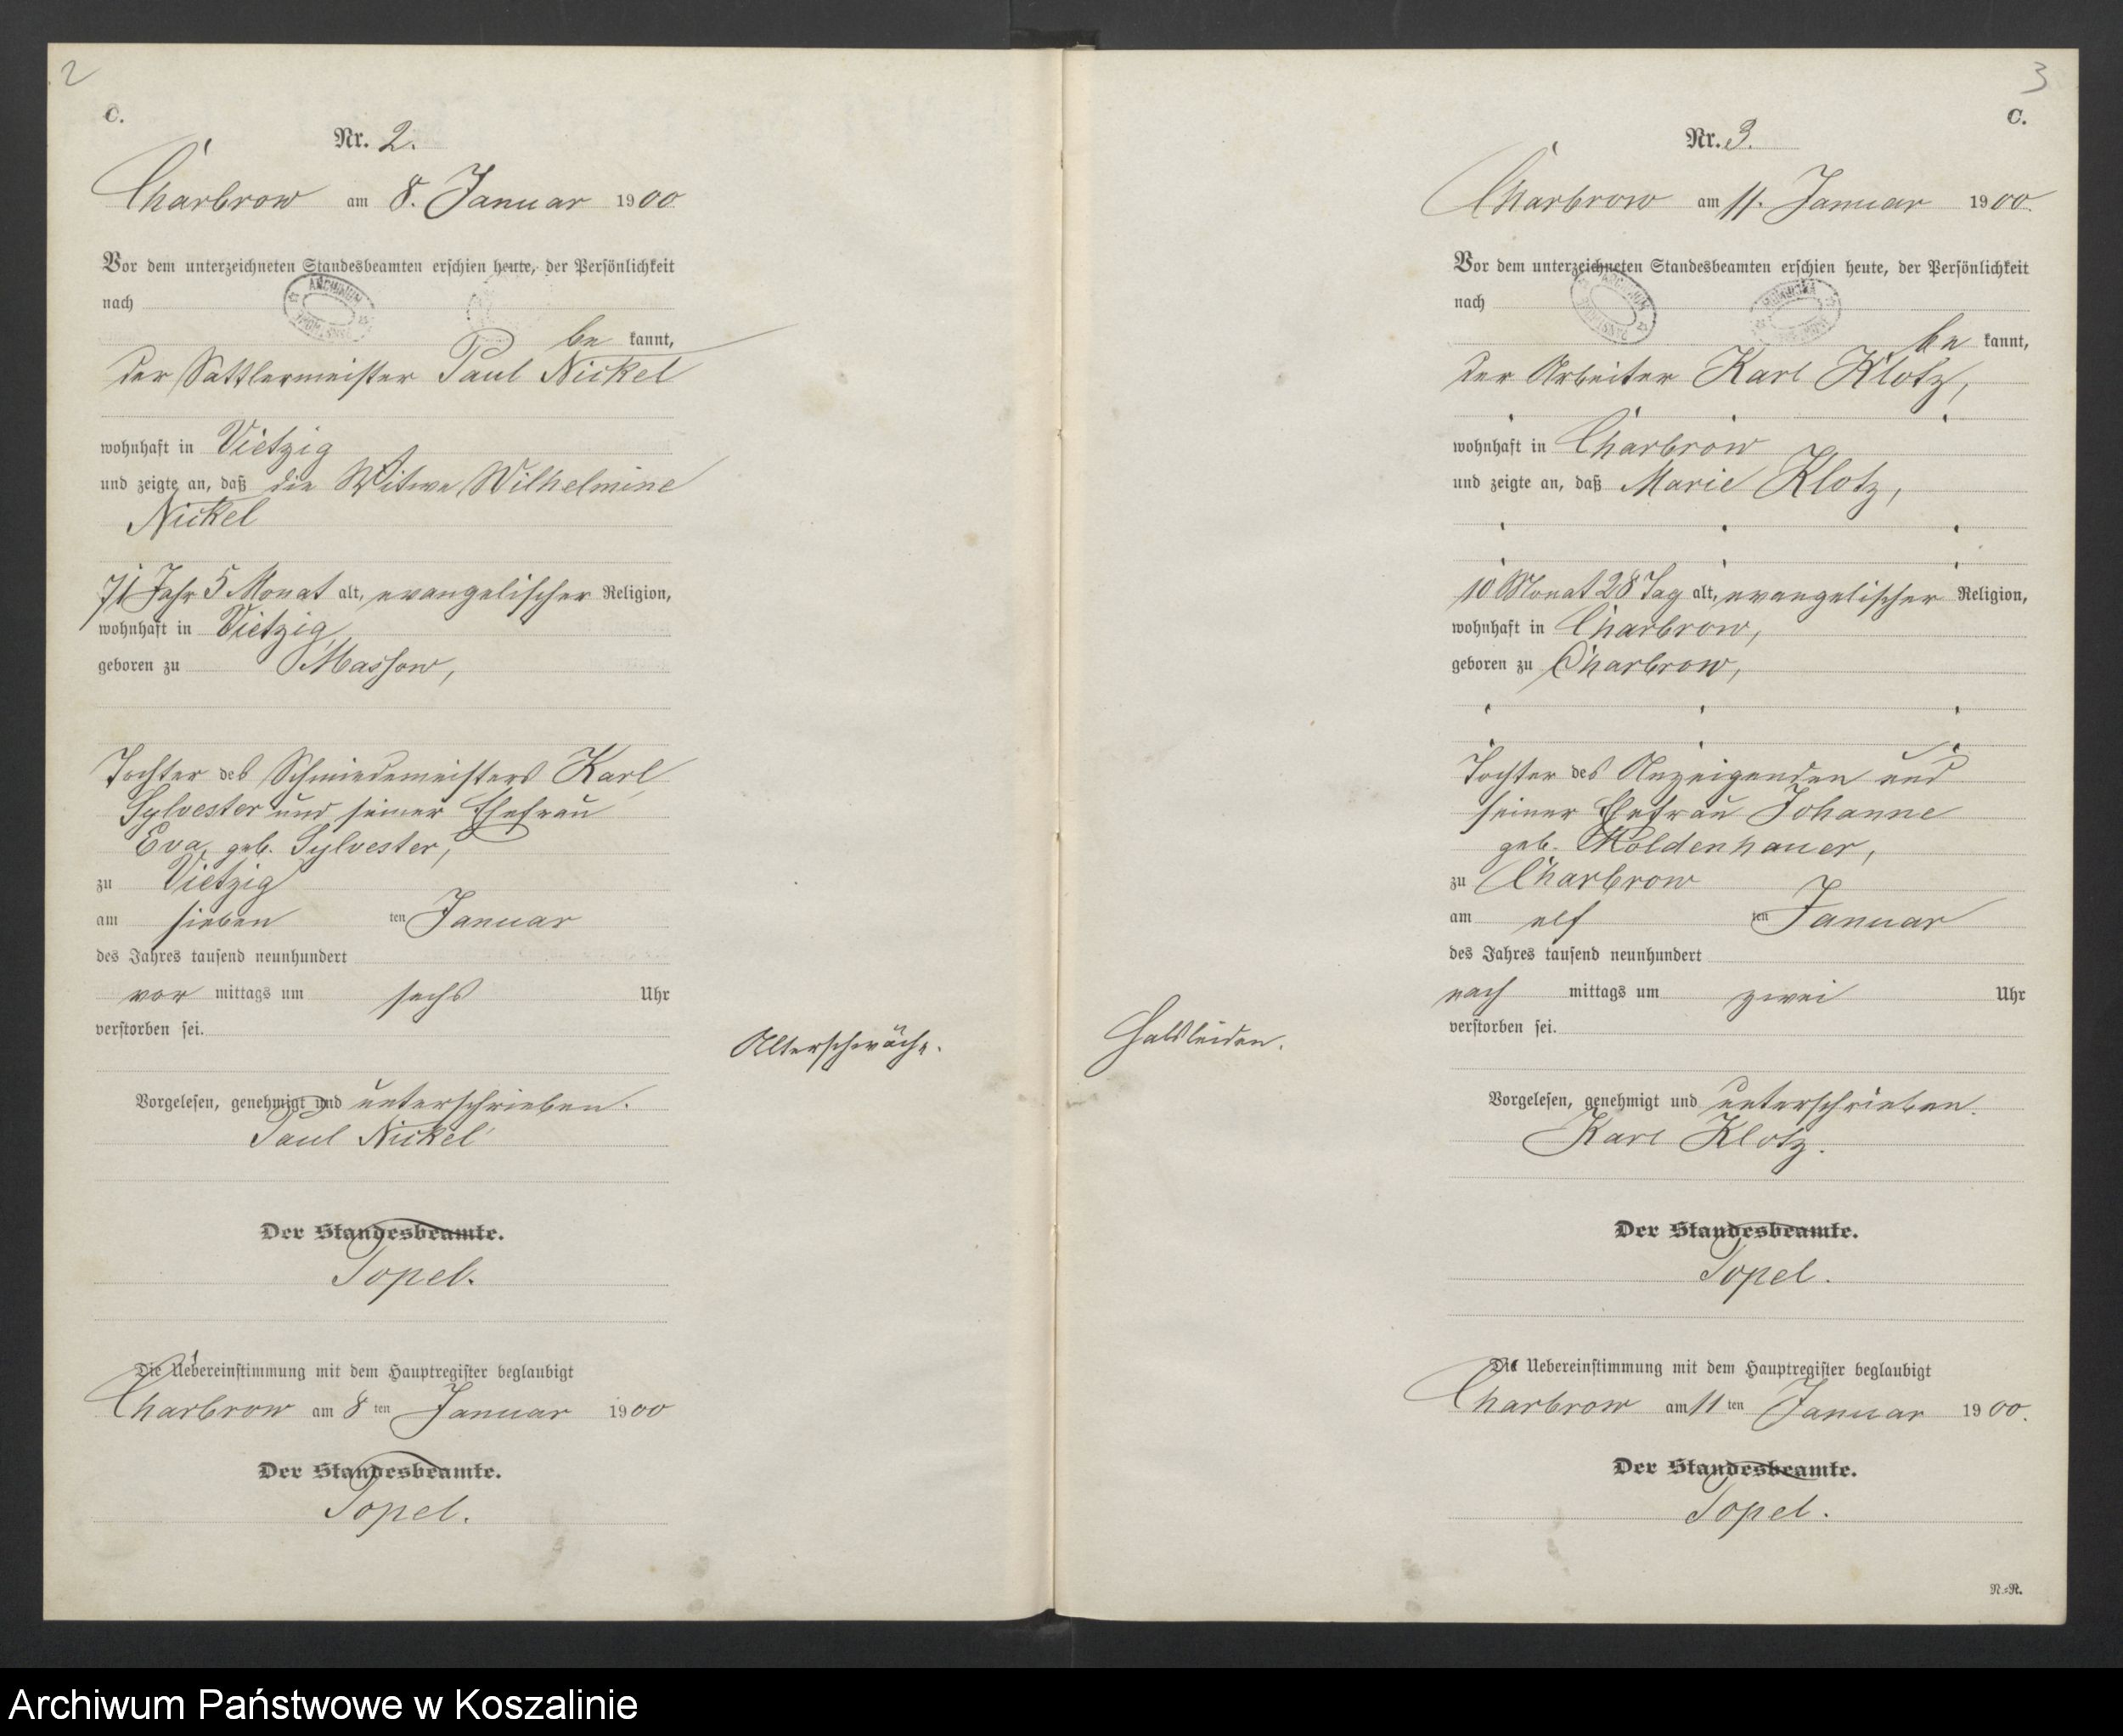 2
C.
Nr. 2.
Charbrow am 8. Januar 1900
Vor dem unterzeichneten Standesbeamten erschien heute, der Persönlichkeit
nach
ARCHIWUM
be kannt,
der Sattlermeister Paul Nickel
wohnhaft in Vietzig
und zeigte an, daß die Witwe Wilhelmine
Nickel
71 Jahr 5 Monat alt, evangelischer Religion,
wohnhaft in Vietzig,
geboren zu Massow,
Tochter des Schmiedemeisters Karl
Sylvester und seiner Ehefrau
Eva, geb. Sylvester,
zu Vietzig
am sieben ten Januar
des Jahres tausend neunhundert
vor mittags um sechs Uhr
verstorben sei.
Alterschwäche.
Vorgelesen, genehmigt und unterschrieben.
Paul Nickel
Der Standesbeamte.
Topel.
Die Uebereinstimmung mit dem Hauptregister beglaubigt
Charbrow am 8 ten Januar 1900
Der Standesbeamte.
Topel.
3
C.
Nr. 3.
Charbrow am 11. Januar 1900.
Vor dem unterzeichneten Standesbeamten erschien heute, der Persönlichkeit
nach
be kannt,
der Arbeiter Karl Klotz,
wohnhaft in Charbrow
und zeigte an, daß Marie Klotz,
10 Monat 28 Tag alt, evangelischer Religion,
wohnhaft in Charbrow,
geboren zu Charbrow,
Tochter des Anzeigenden und
seiner Ehefrau Johanne
geb. Moldenhauer,
zu Charbrow
am elf ten Januar
des Jahres tausend neunhundert
nach mittags um zwei Uhr
verstorben sei.
Halsleiden.
Vorgelesen, genehmigt und unterschrieben.
Karl Klotz.
Der Standesbeamte.
Topel.
Die Uebereinstimmung mit dem Hauptregister beglaubigt
Charbrow am 11 ten Januar 1900.
Der Standesbeamte.
Topel.
N.=R.
Archiwum Państwowe w Koszalinie